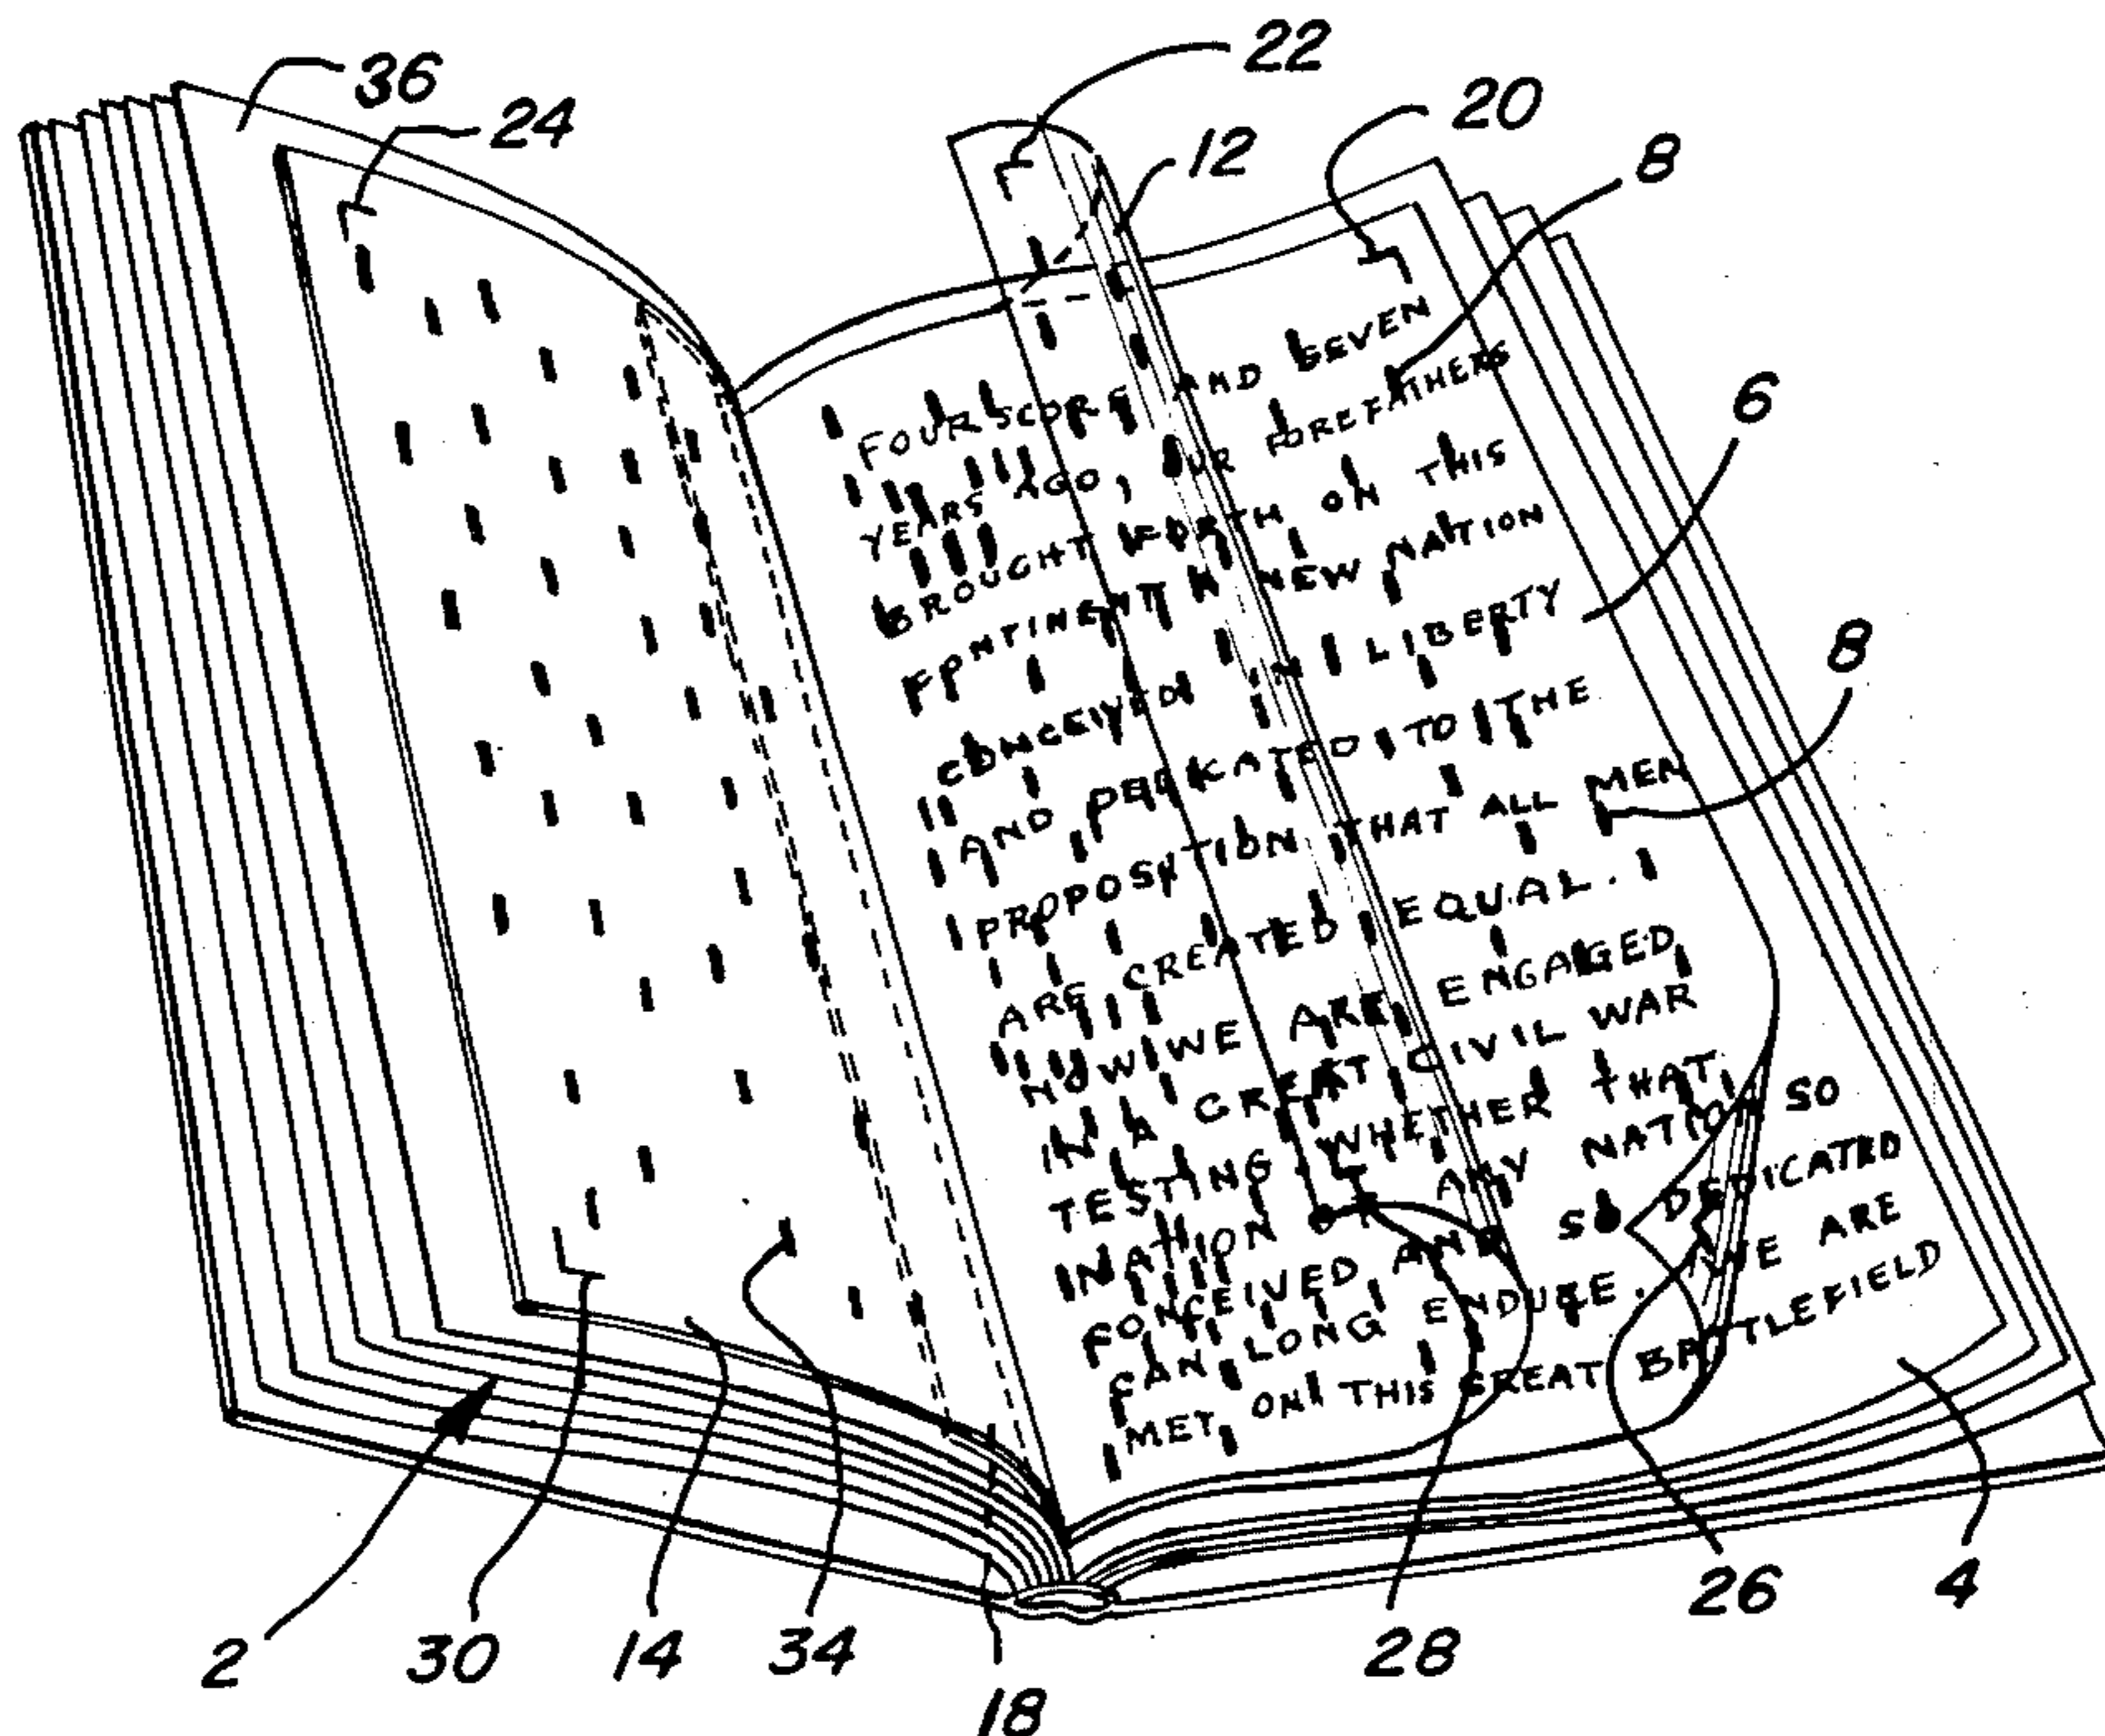 36
24
22
12
20
8
6
8
FOUR SCORE AND SEVEN
YEARS AGO, OUR FOREFATHERS
BROUGHT FORTH ON THIS
FONTINENT A NEW NATION
CONCEIVED IN LIBERTY
AND DEDICATED TO THE
PROPOSITION THAT ALL MEN
ARE CREATED EQUAL.
NOW WE ARE ENGAGED
IN A GREAT CIVIL WAR
TESTING WHETHER THAT
NATION ANY NATION SO
CONCEIVED AND SO DEDICATED
CAN LONG ENDURE. WE ARE
MET ON THIS GREAT BATTLEFIELD
2
30
14
34
18
28
26
4